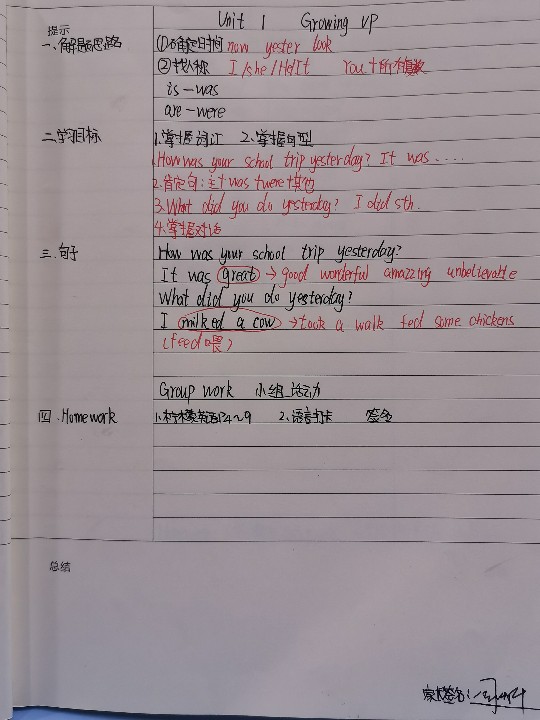 Unit 1 Growing up
提示
一、解题思路 ①确定时间 now yester look
②找人称 I/she/He/It You+所有复数
is-was
are-were
二.学习目标 1.掌握词汇 2.掌握句型
1.How was your school trip yesterday? It was.....
2.肯定句:主+was+were+其他
3.What did you do yesterday? I did sth.
4.掌握对话
三.句子 How was your school trip yesterday?
It was great → good wonderful amazzing unbelievable
What did you do yesterday?
I milked a cow → took a walk fed some chickens
(feed喂)
Group work 小组活动
四.Homework 1. 4~9 2.语言打卡 签名
总结
家长签名: